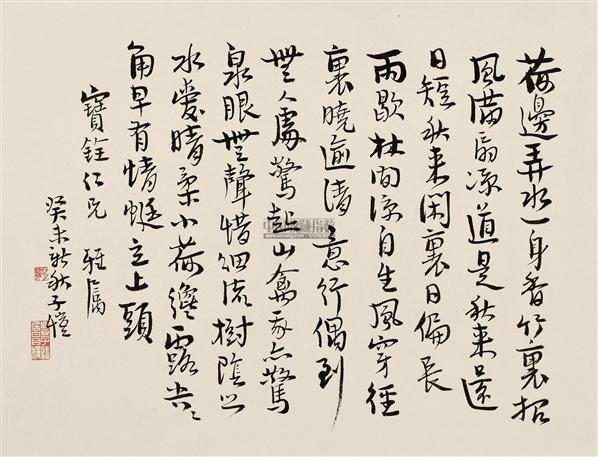 荷邊弄水一身香竹裏招
風滿扇凉道是秋来還
日短秋来闲裏日偏長
雨歇林间凉自生風穿徑
裏曉逾清意行偶到
無人處驚起山禽我亦驚
泉眼無聲惜细流樹陰照
水爱晴柔小荷纔露尖々
角早有蜻蜓立上頭
寶銓仁兄 雅属
癸未新秋子愷